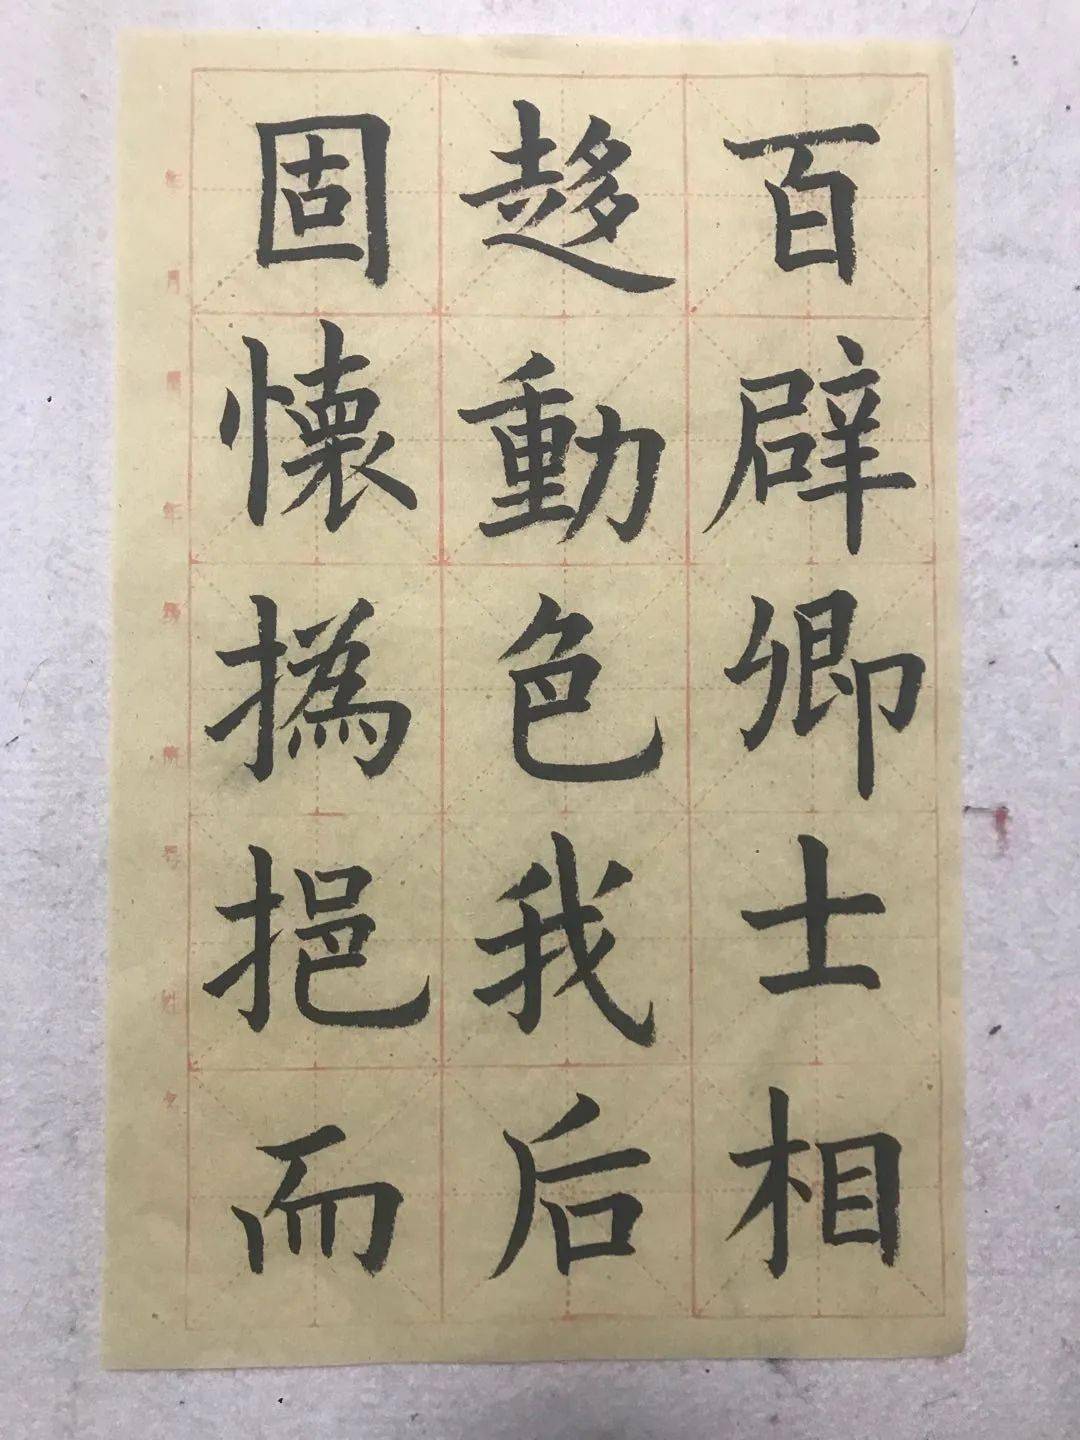 百辟卿士相
趍動色我后
固懷撝挹而